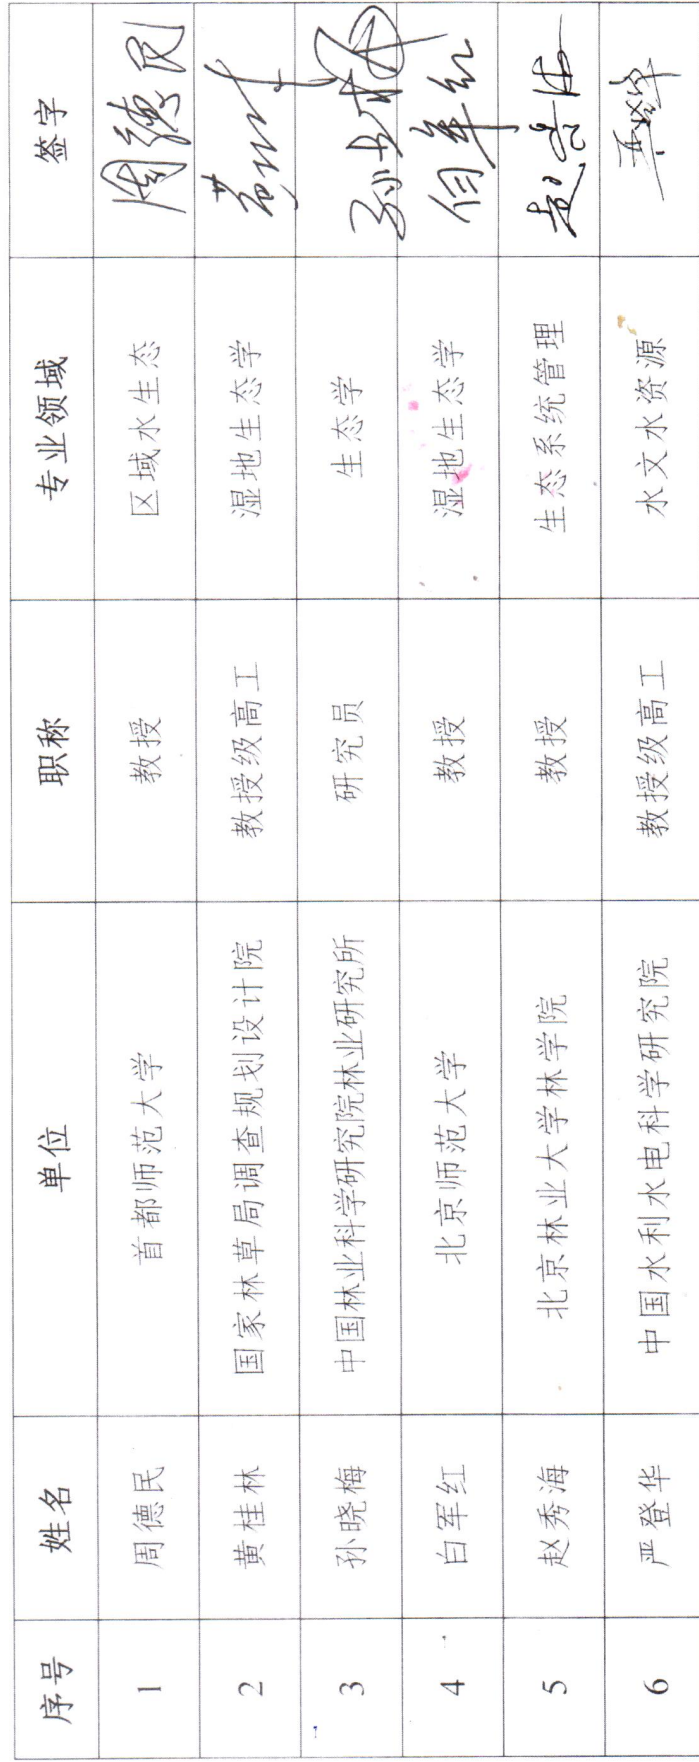 序号 姓名 单位 职称 专业领域 签字
1 周德民 首都师范大学 教授 区域水生态 周德民
2 黄桂林 国家林草局调查规划设计院 教授级高工 湿地生态学
3 孙晓梅 中国林业科学研究院林业研究所 研究员 生态学
4 白军红 北京师范大学 教授 湿地生态学
5 赵秀海 北京林业大学林学院 教授 生态系统管理
6 严登华 中国水利水电科学研究院 教授级高工 水文水资源